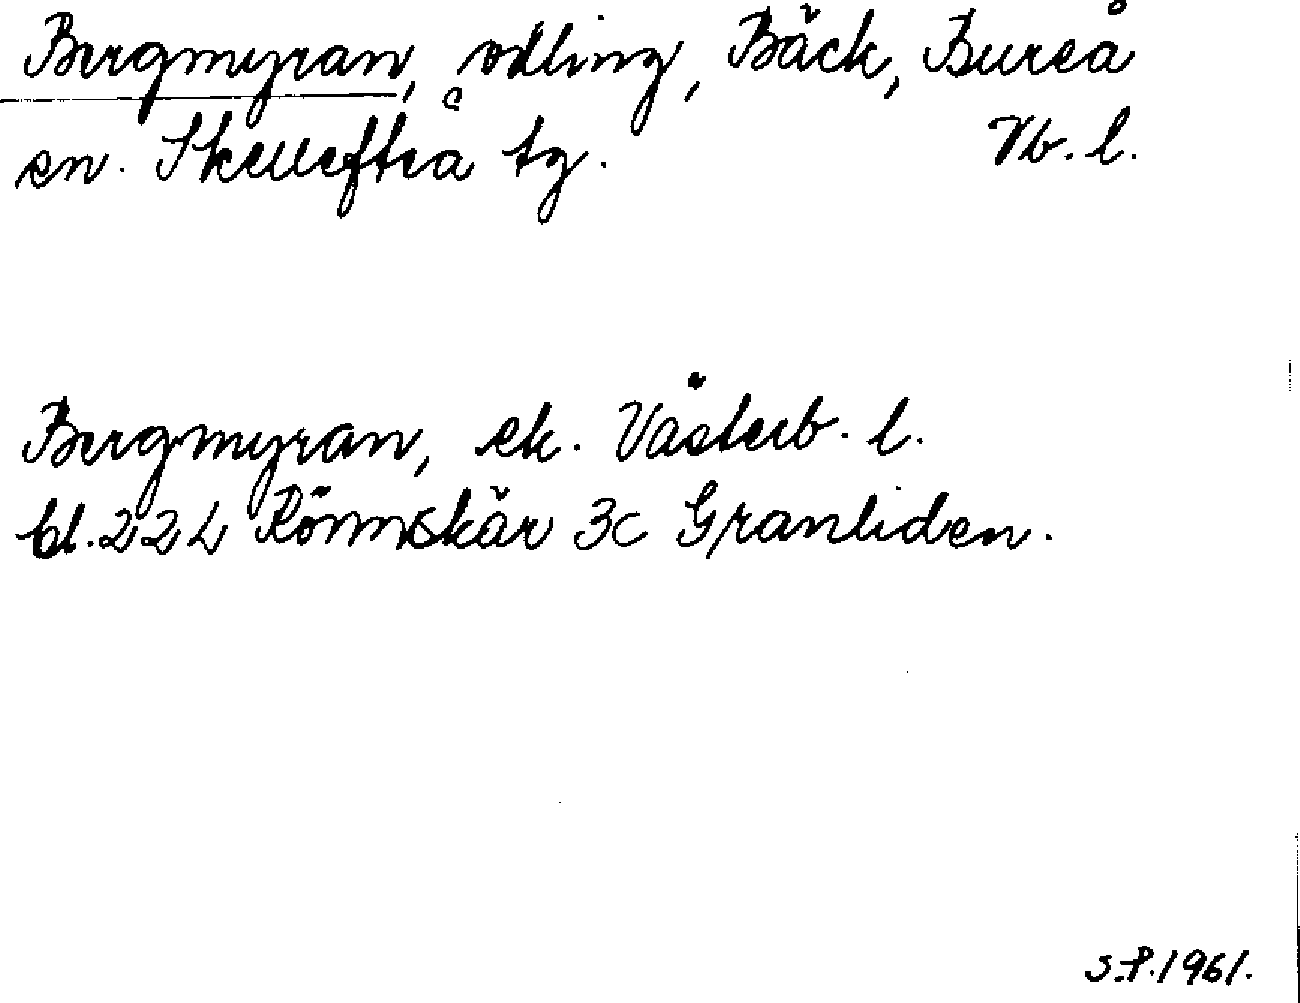 Bergmyran, odling, Bäck, Bureå
sn. Skellefteå tg. Vb. l.
Bergmyran, ek. Västerb. l.
bl. 22 L Rönnskär 3c Granliden.
S.P. 1961.